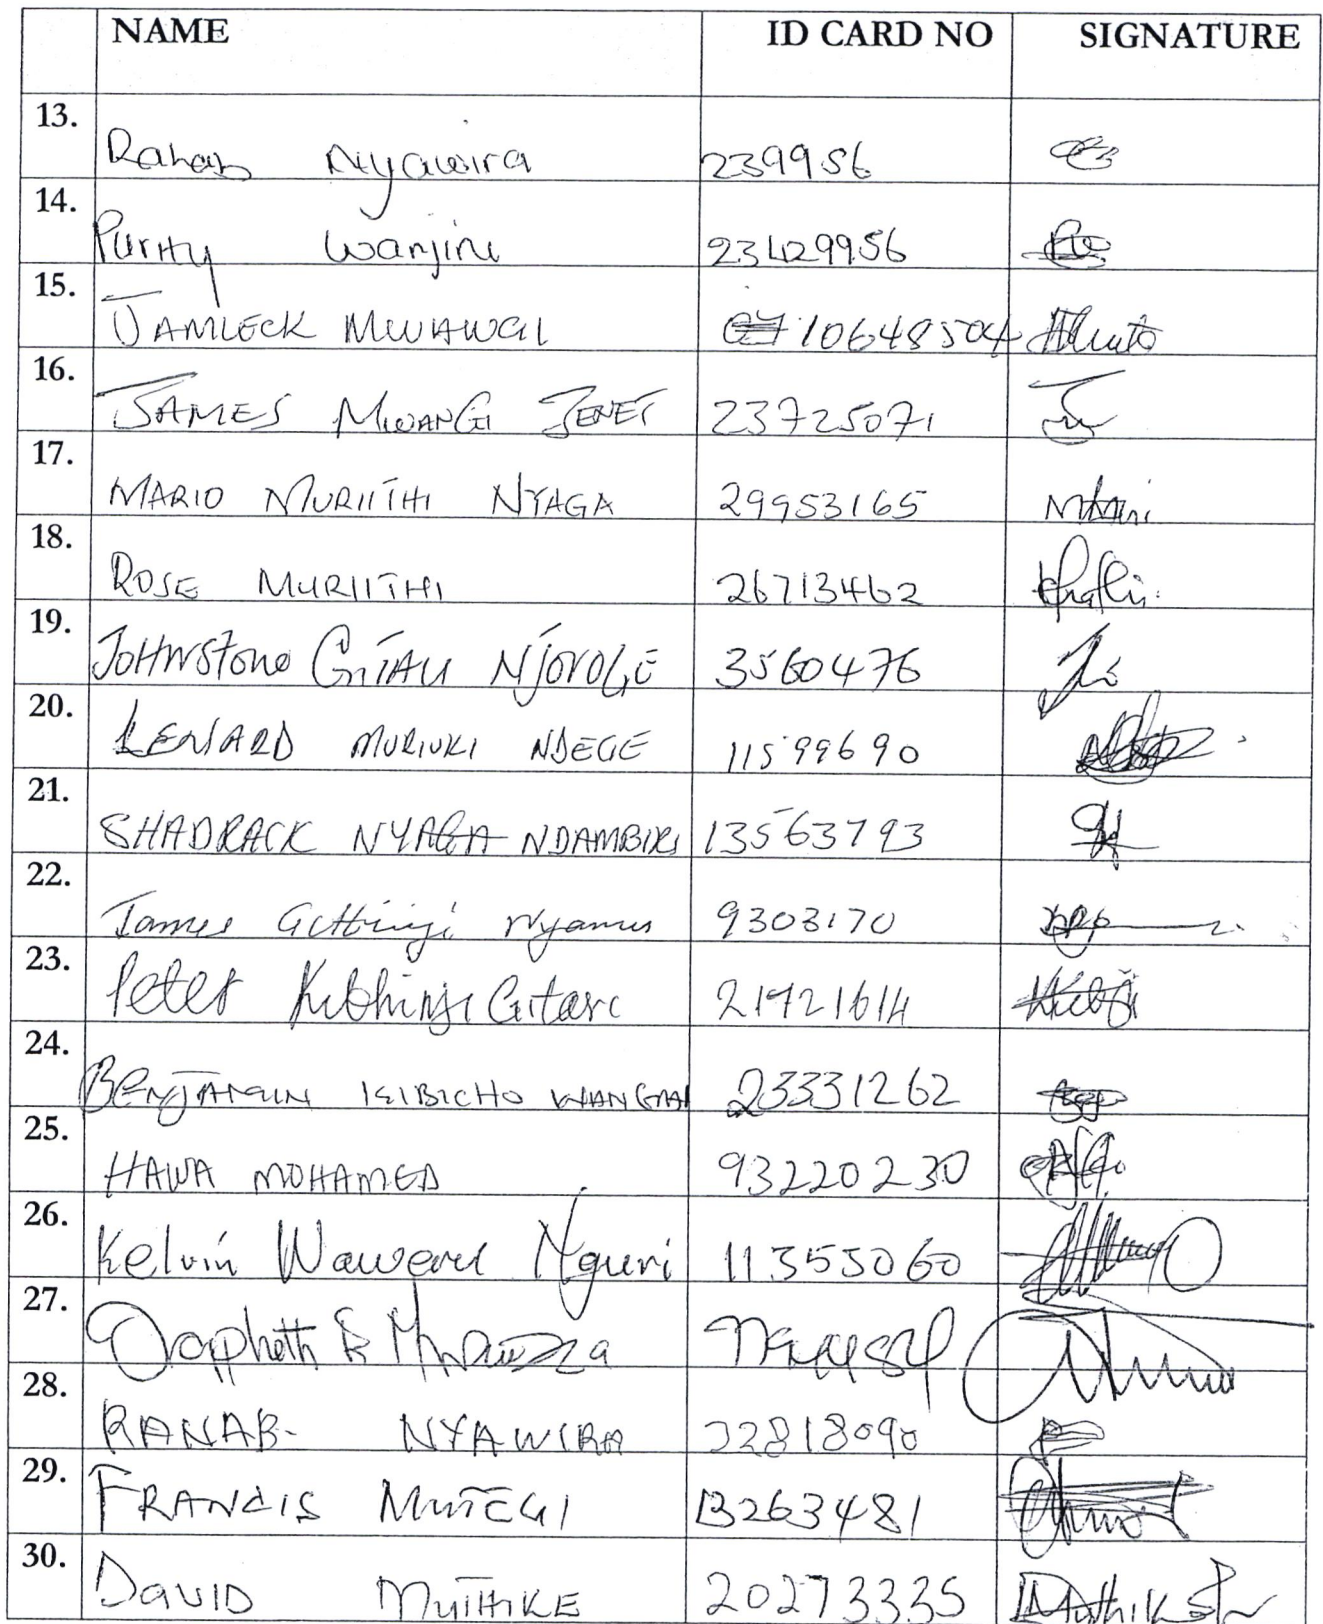 NAME ID CARD NO SIGNATURE
13. Rahab Nyawira 239956
14. Purity Wanjiru 23429956
15. JAMLECK MWAWGI 10648504
16. JAMES MWANGI JENET 23725071
17. MARIO MURIITHI NYAGA 29953165
18. ROSE MURIITHI 26713462
19. JOHNSTONE GITAU NJOROGE 3560476
20. LENARD MURIUKI NDEGE 11599690
21. SHADRACK NYAGA NDAMBIRI 13563793
22. James Gethinji Nyamu 9303170
23. Peter Kibhinji Gitari 21921614
24. BENJAMIN KIBICHO WANGAI 23331262
25. HAWA MOHAMED 93220230
26. Kelvin Waweru Nguri 113553060
27.
28. RAHAB NYAWIRA 22818090
29. FRANCIS MUTEGI 13263481
30. DAVID MUTHIKE 20273335